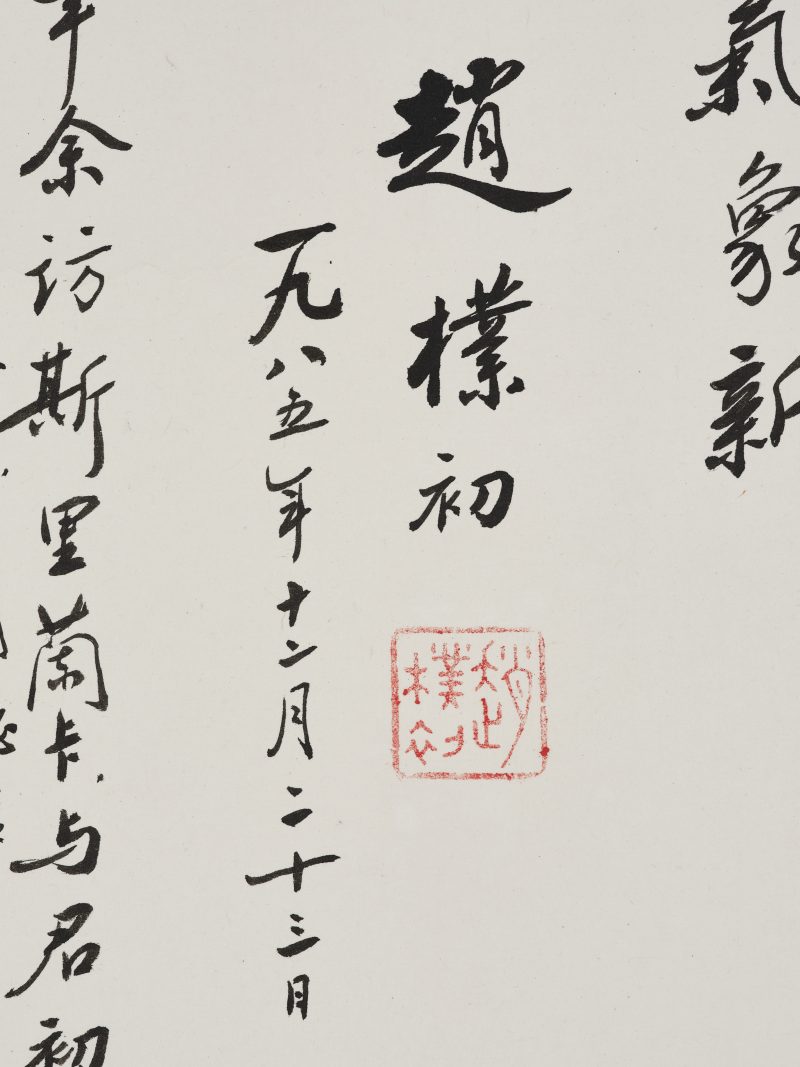 氣象新
趙樸初
趙樸初
一九八五年十二月二十三日
年余訪斯里蘭卡与君初